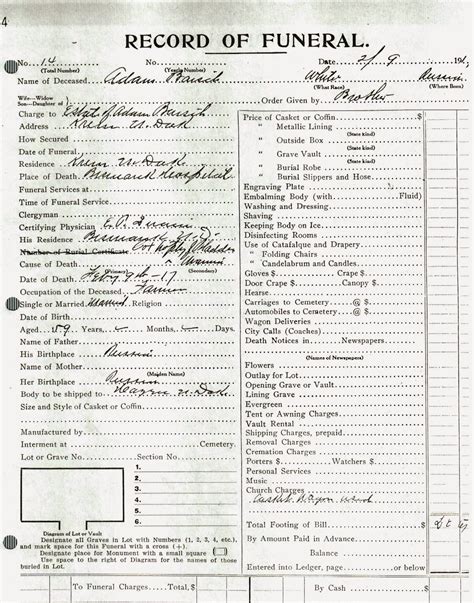 4
RECORD OF FUNERAL.
No. 14 Date 2/9 191
(Total Number) (Yearly Number)
Name of Deceased Adam Bausch White Russia
(What Race) (Where Born)
Wife–Widow
Son–Daughter of Order Given by Brother
Charge to Estate of Adam Bausch
Address Krem N. Dak
How Secured
Date of Funeral
Residence Krem N. Dak.
Place of Death Bismarck Hospital
Funeral Services at
Time of Funeral Service
Clergyman
Certifying Physician E. P. Quain
His Residence Bismarck N.D.
Number of Burial Certificate
Cause of Death
(Primary) (Secondary)
Date of Death Feb. 9th-17
Occupation of the Deceased Farmer
Single or Married Married Religion
Date of Birth
Aged 59 Years Months Days.
Name of Father
His Birthplace Russia
Name of Mother
(Maiden Name)
Her Birthplace Russia
Body to be shipped to Hazen N. Dak.
Size and Style of Casket or Coffin
Manufactured by
Interment at Cemetery.
Lot or Grave No. Section No.
1.
2.
3.
4.
5.
6.
Diagram of Lot or Vault
Designate all Graves in Lot with Numbers (1, 2, 3, 4, etc.),
and mark space for this Funeral with a cross (+).
Designate place for Monument with a small square
Use space to right of Diagram for the names of those
buried in Lot.
To Funeral Charges Total,
Price of Casket or Coffin
" Metallic Lining
(State kind)
" Outside Box
(State kind)
" Grave Vault
(State kind)
" Burial Robe
(State kind)
" Burial Slippers and Hose
Engraving Plate
Embalming Body (with Fluid)
Washing and Dressing
Shaving
Keeping Body on Ice
Disinfecting Rooms
Use of Catafalque and Drapery
" Folding Chairs
" Candelabrum and Candles
Gloves $ Crape $
Door Crape $ Canopy $
Hearse
Carriages to Cemetery @ $
Automobiles to Cemetery @ $
Wagon Deliveries
City Calls (Coaches)
Death Notices in Newspapers
(Names of Newspapers)
Flowers
Outlay for Lot
Opening Grave or Vault
Lining Grave
Evergreen
Tent or Awning Charges
Vault Rental
Shipping Charges, prepaid
Removal Charges
Cremation Charges
Porters $ Watchers $
Personal Services
Music
Church Charges
Casket Wagon used
Total Footing of Bill $
By Amount Paid in Advance
Balance
Entered into Ledger, page or below.
By Cash $